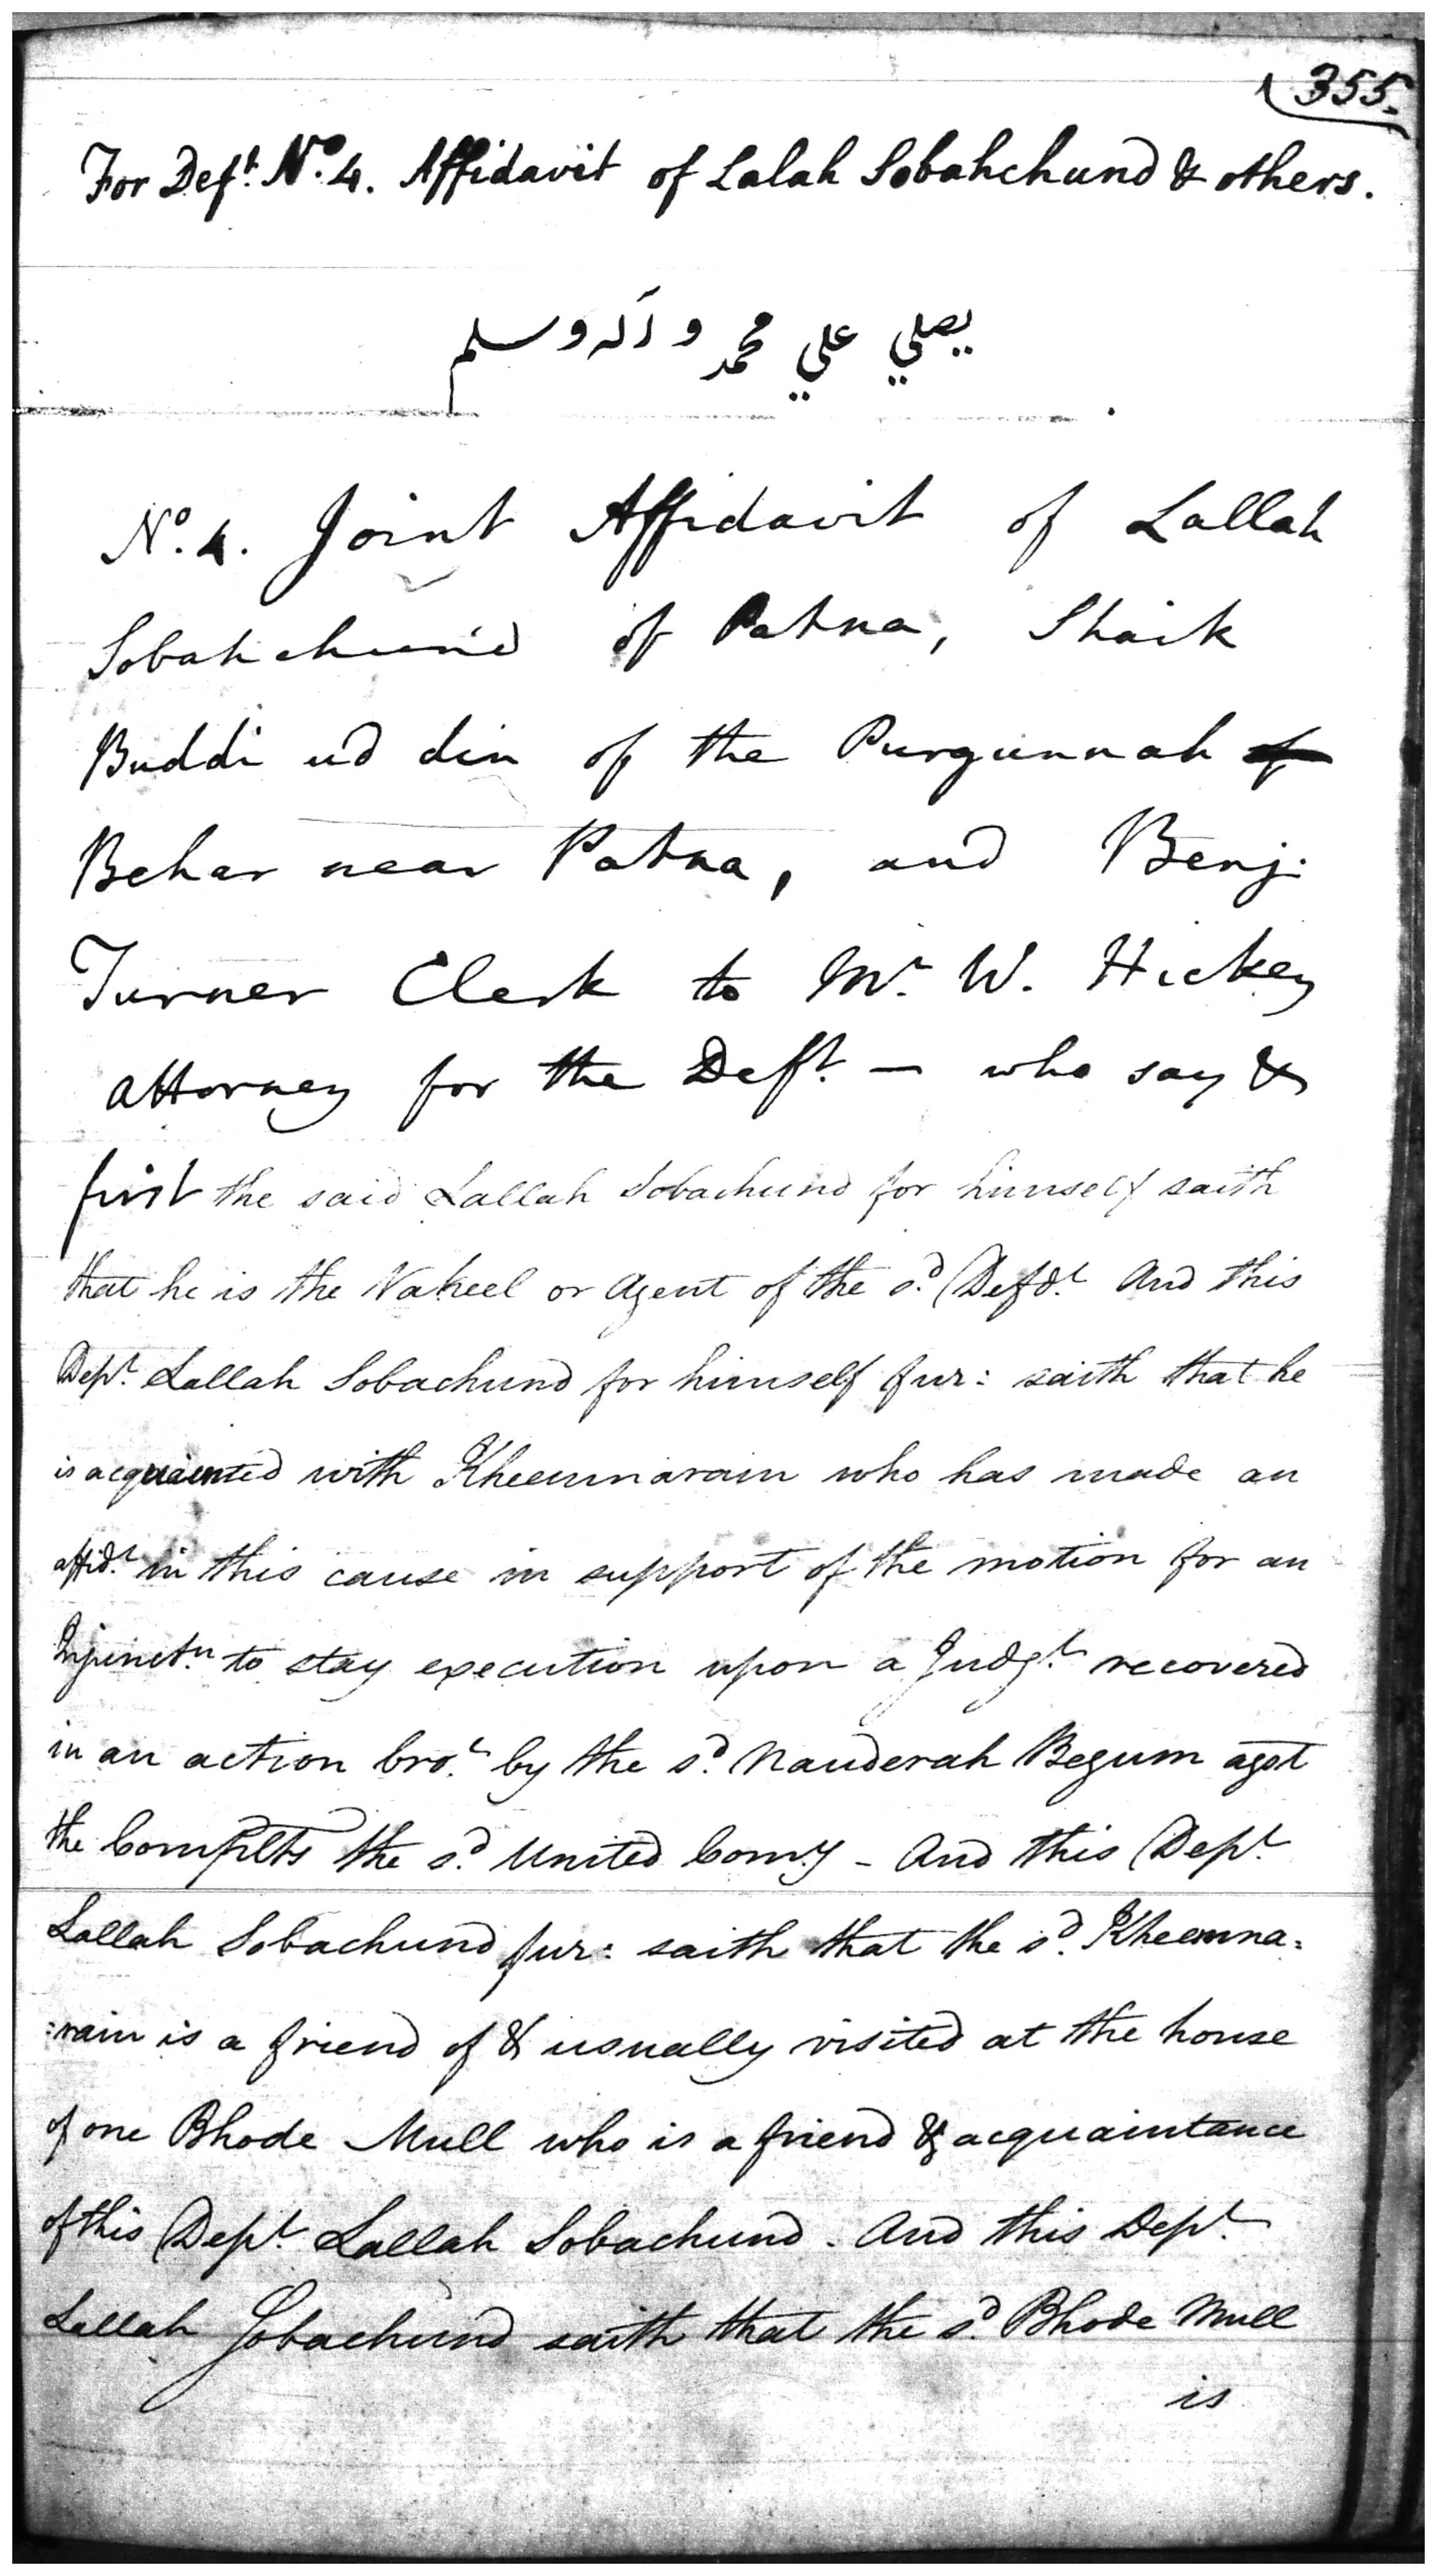 355.
For Deft. No. 4. Affidavit of Lalah Sobahchund & others.
يصلي علي محمد وآله وسلم
No. 4. Joint Affidavit of Lallah
Sobahchund of Patna, Shaik
Buddi ud din of the Purgunnah of
Behar near Patna, and Benj.
Turner Clerk to Mr. W. Hickey
attorney for the Deft. - who say &
first the said Lallah Sobachund for himself saith
that he is the Vakeel or Agent of the sd. Defdt. And this
Dept. Lallah Sobachund for himself fur: saith that he
is acquainted with Kheemnarain who has made an
affidt. in this cause in support of the motion for an
Injunctn. to stay execution upon a Judgt. recovered
in an action brot. by the sd. Nauderah Begum agst
the Complts the sd. United Comy - And this Dept.
Lallah Sobachund fur: saith that the sd. Kheemna=
=rain is a friend of & usually visited at the house
of one Bhode Mull who is a friend & acquaintance
of this Dept. Lallah Sobachund - And this Dept.
Lallah Sobachund saith that the sd. Bhode Mull
is